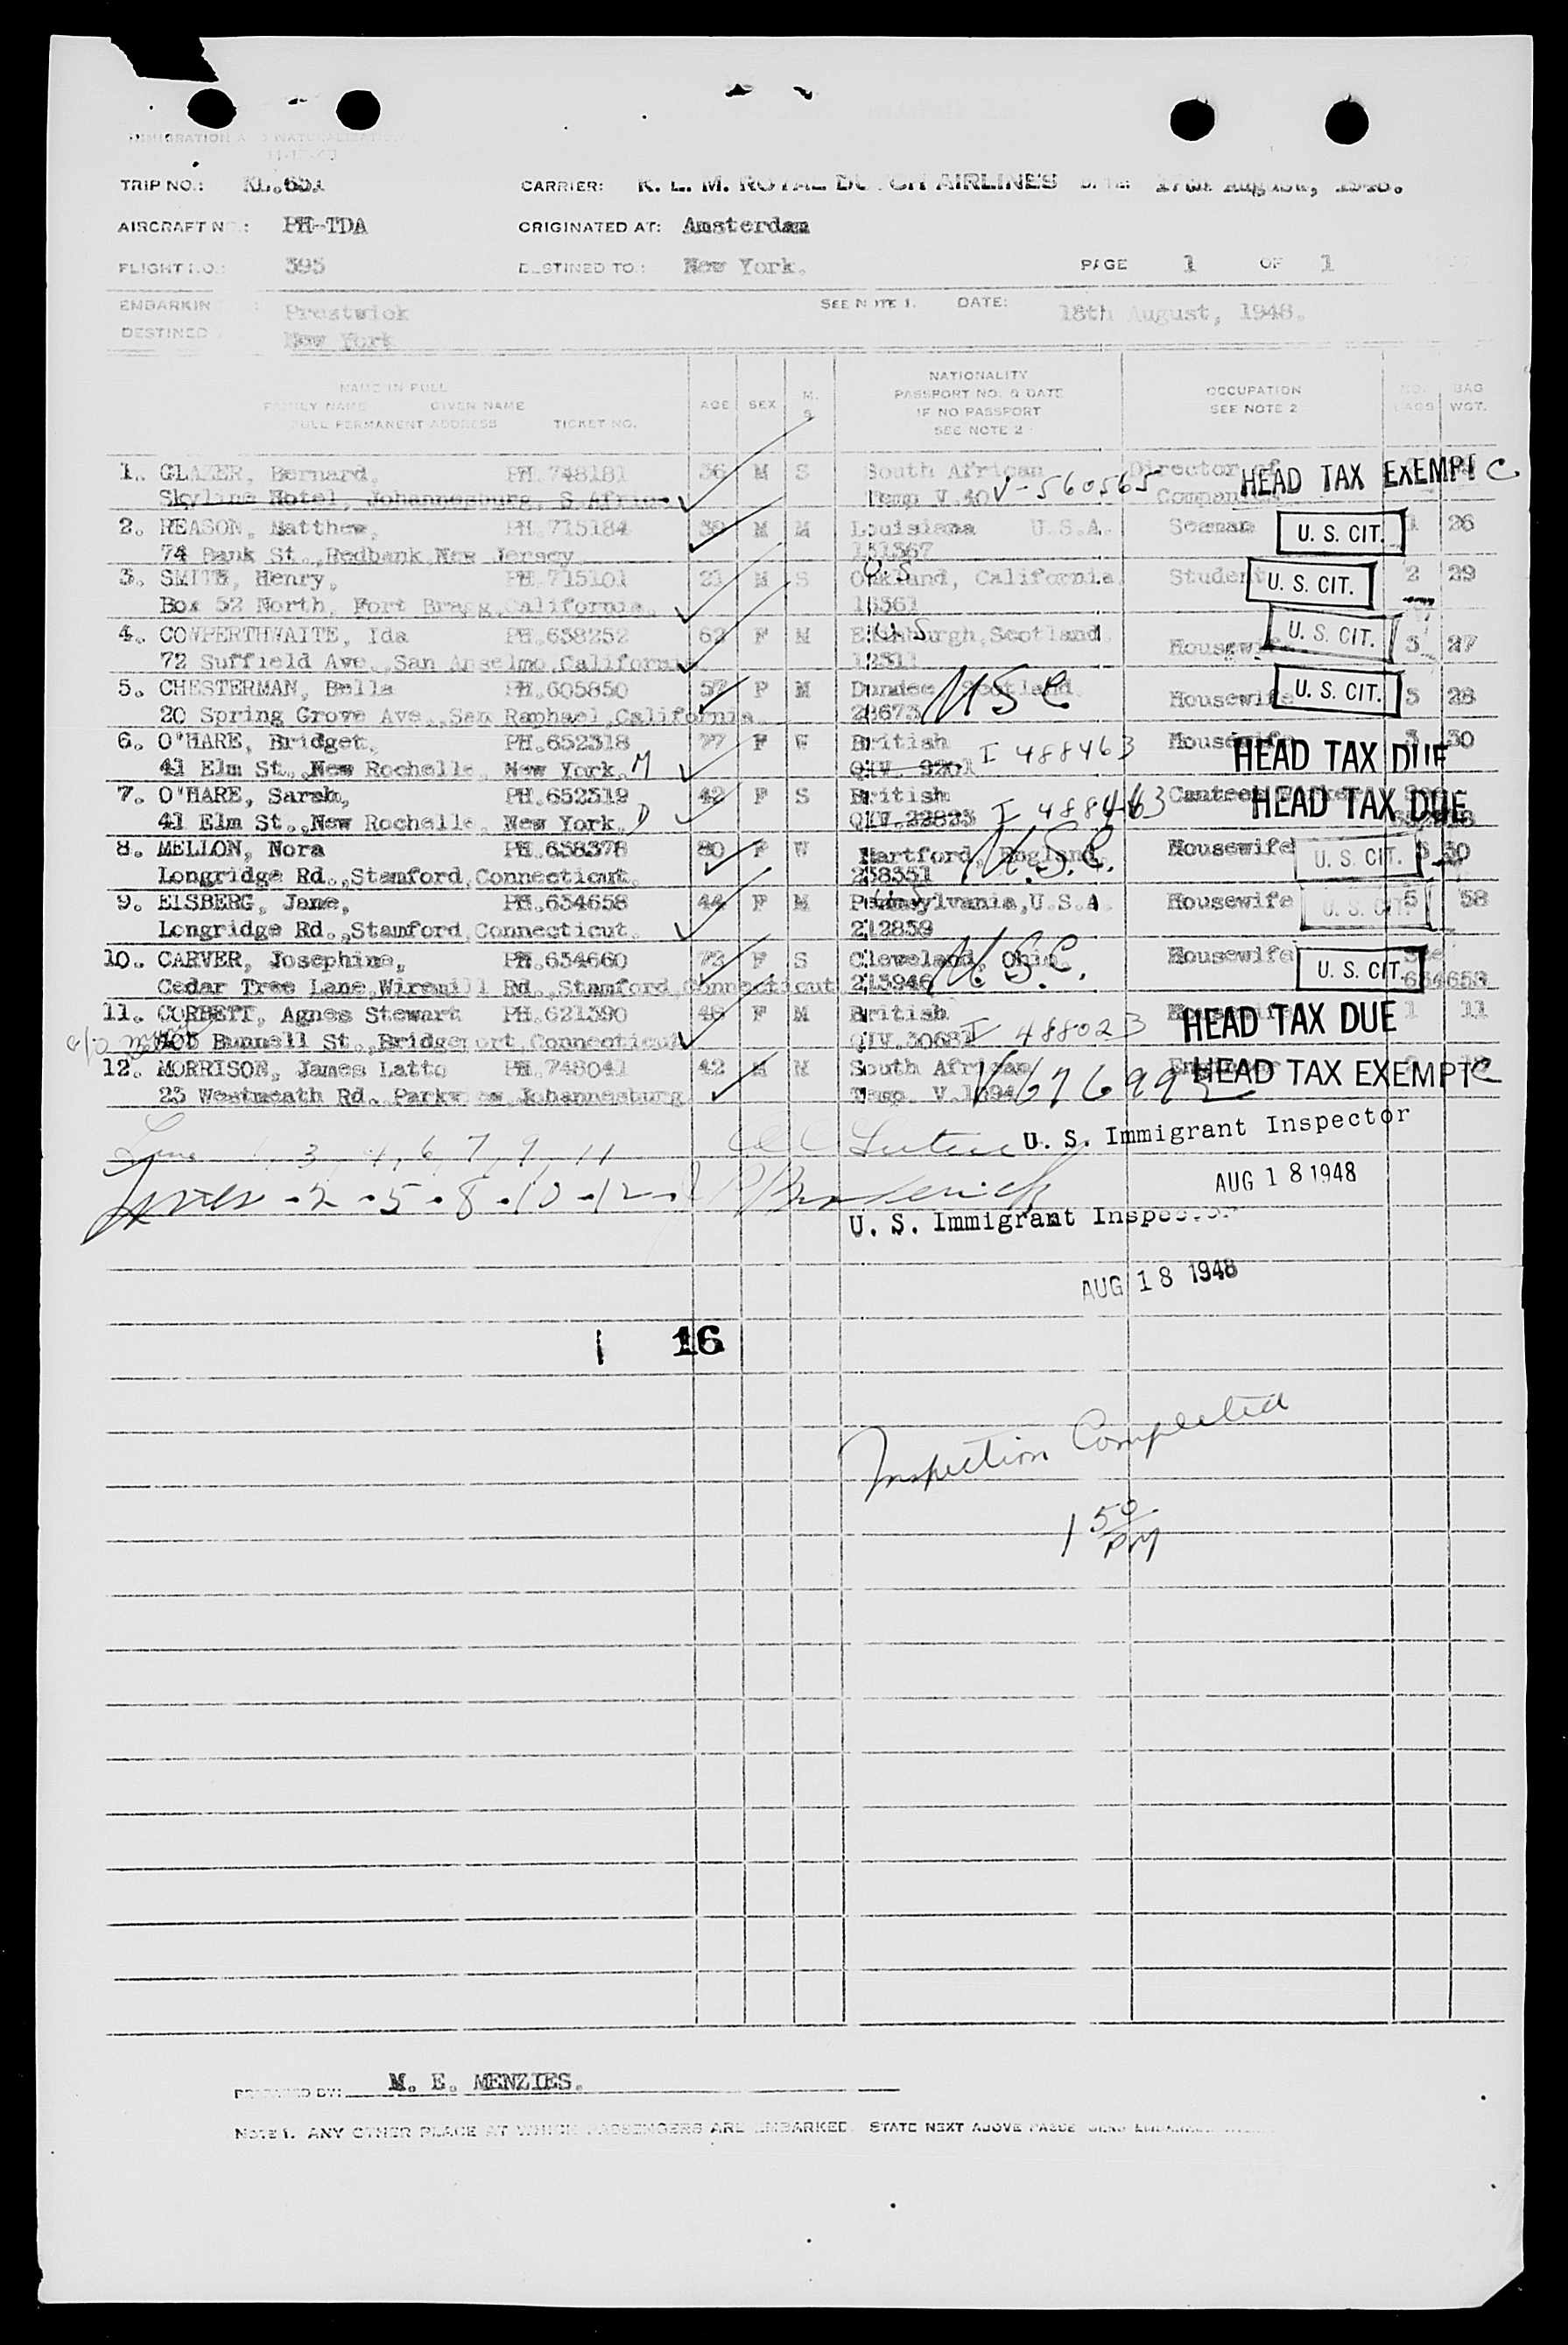 TRIP NO.: KL.651 CARRIER: K. L. M. ROYAL DUTCH AIRLINES DATE: 17th August, 1948.
AIRCRAFT N : PH-TDA ORIGINATED AT: Amsterdam
FLIGHT NO.: 395 DESTINED TO: New York. PAGE 1 OF 1
EMBARKIN : Prestwick SEE NOTE 1. DATE: 18th August, 1948.
DESTINED New York
NAME IN FULL
FAMILY NAME GIVEN NAME
FULL PERMANENT ADDRESS TICKET NO.
AGE SEX M. S
NATIONALITY
PASSPORT NO. & DATE
IF NO PASSPORT
SEE NOTE 2
OCCUPATION
SEE NOTE 2
NO. BAGS BAG WGT.
1. GLAZER, Bernard. PH.748181 36 M S South African Director of HEAD TAX EXEMPT C
Skyline Hotel, Johannesburg, S.Africa Temp V.40 V-560565 Companies
2. REASON, Matthew, PH.715184 39 M M Louisiana U.S.A. Seaman U. S. CIT. 1 26
74 Bank St.,Redbank,New Jersey 151367
3. SMITH, Henry, PH.715101 21 M S Oakland, California. Student U. S. CIT. 2 29
Box 52 North, Fort Bragg,California. 18361 U.S
4. COWPERTHWAITE, Ida PH.638252 62 F M Edinburgh,Scotland Housewife U. S. CIT. 3 27
72 Suffield Ave.,San Anselmo,California 12511 U.S
5. CHESTERMAN, Bella PH.605850 57 F M Dundee, Scotland. Housewife U. S. CIT. 5 28
20 Spring Grove Ave.,San Raphael,California. 28673 USC
6. O'HARE, Bridget, PH.652318 77 F W British Housewife HEAD TAX DUE 3 30
41 Elm St.,New Rochelle, New York. M QIV. 9201 I 488463
7. O'HARE, Sarah, PH.652319 42 F S British Canteen Worker See HEAD TAX DUE
41 Elm St.,New Rochelle, New York. D QIV.22823 I 488463 652318
8. MELLON, Nora PH.658378 80 F W Hartford, England. Housewife U. S. CIT. 3 30
Longridge Rd.,Stamford,Connecticut. 258351 U.S.C.
9. EISBERG, Jane, PH.634658 44 F M Pennsylvania,U.S.A Housewife U. S. CIT. 5 58
Longridge Rd.,Stamford,Connecticut. 212859 U.S
10. CARVER, Josephine, PH.634660 73 F S Cleveland, Ohio. Housewife U. S. CIT. See
Cedar Tree Lane,Wiremill Rd.,Stamford,Connecticut 213946 U.S.C. 634658
11. CORBETT, Agnes Stewart PH.621390 48 F M British Housewife HEAD TAX DUE 1 11
c/o 405 Bunnell St.,Bridgeport,Connecticut QIV.30681 I 488023
12. MORRISON, James Latto PH.748041 42 M M South African Engineer HEAD TAX EXEMPT C
23 Westmeath Rd. Parkview Johannesburg Temp. V.1694 V 676992
Line 1, 3, 4, 6, 7, 9, 11 U. S. Immigrant Inspector
AUG 18 1948
Lines - 2 . 5 . 8 . 10 . 12
U. S. Immigrant Inspector
AUG 18 1948
16
Inspection Completed
1 50 PM
PREPARED BY: M. E. MENZIES.
NOTE 1. ANY OTHER PLACE AT WHICH PASSENGERS ARE EMBARKED. STATE NEXT ABOVE